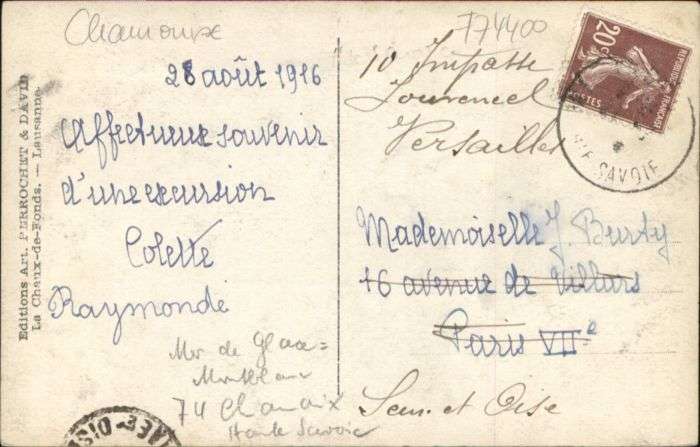 Chamonix
F74400
28 août 1916
Affectueux souvenir
d'une excursion
Colette
Raymonde
Editions Art. PERROCHET & DAVID
La Chaux-de-Fonds. — Lausanne
Mer de Glace =
Montblanc
74 Chamonix
Haute Savoie
10 Impasse
Versailles
Mademoiselle J. Burty
16 avenue de Villars
Paris VIIe
Seine et Oise
20c
REPUBLIQUE FRANÇAISE
POSTES
HTE SAVOIE